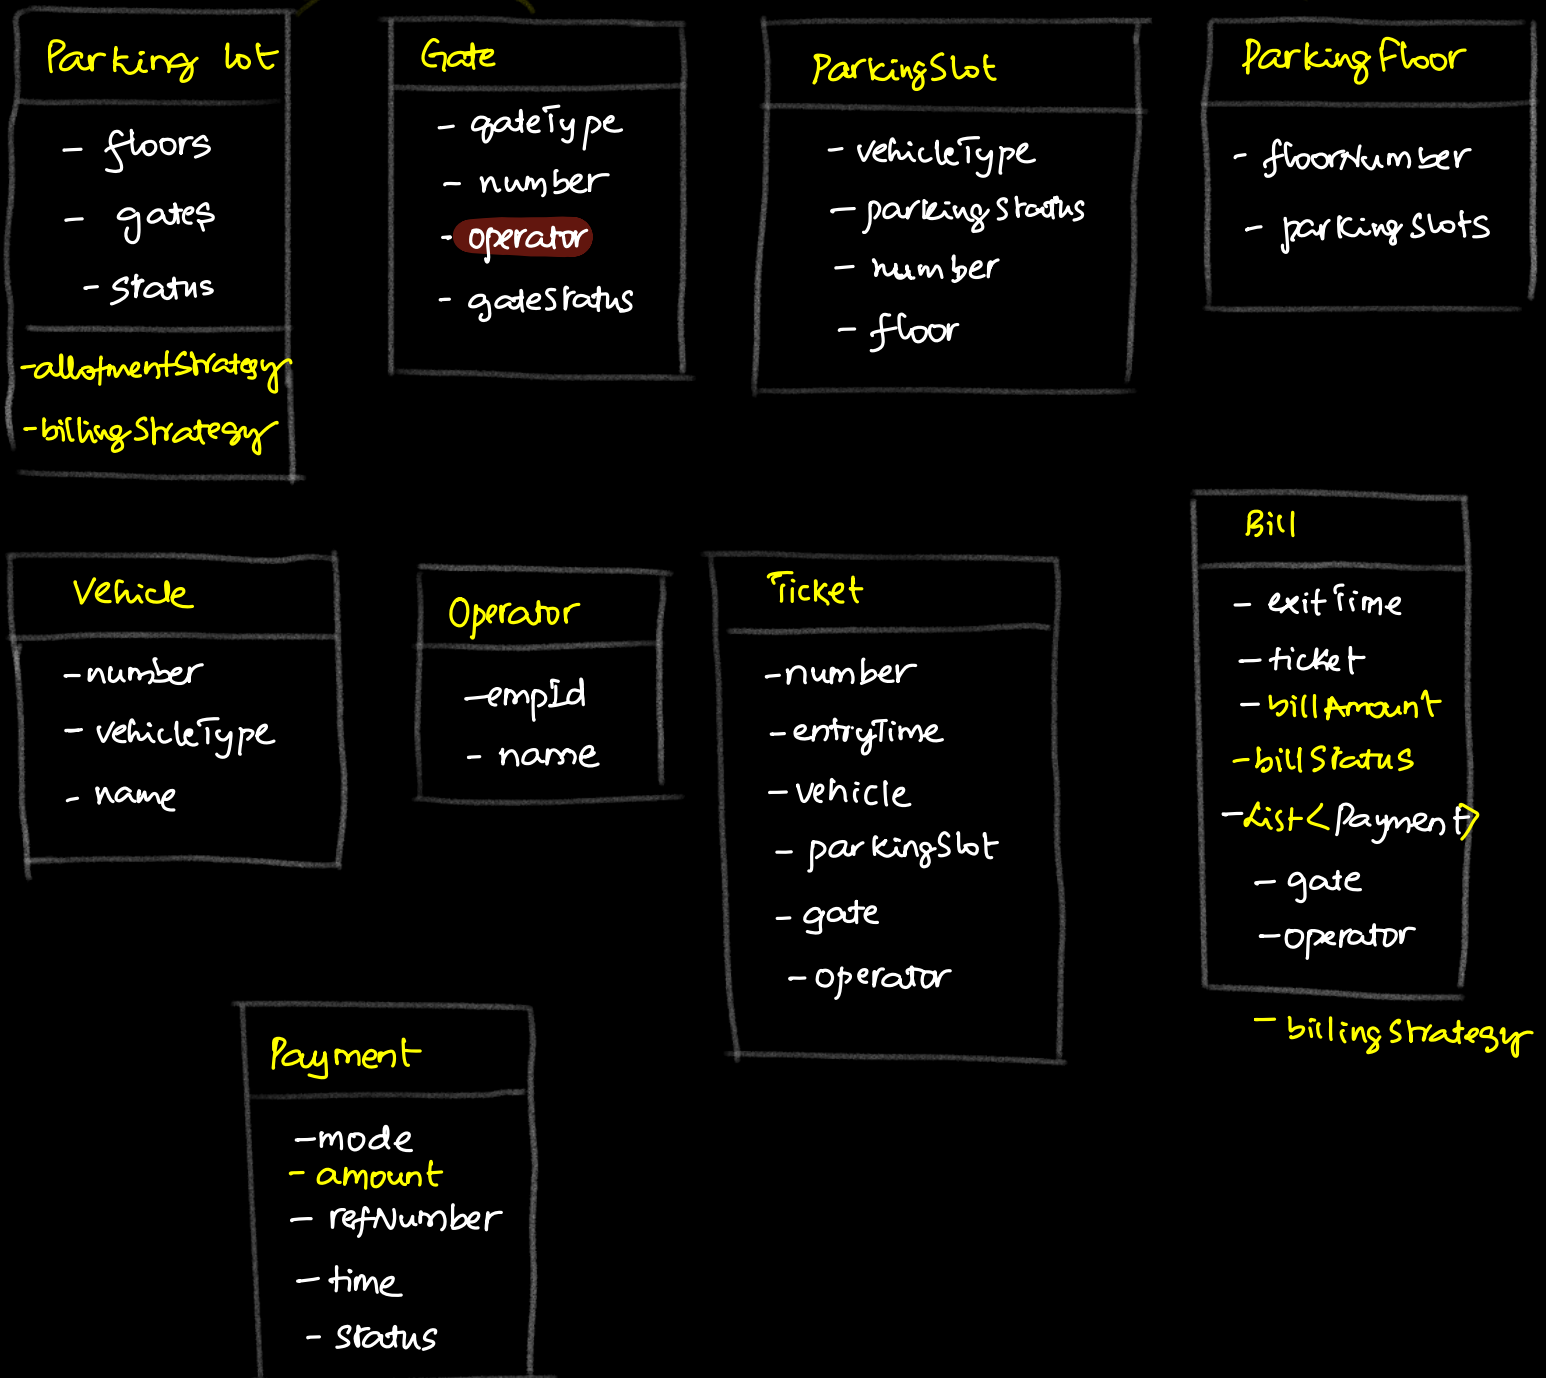 Parking lot
- floors
- gates
- status
- allotmentStrategy
- billingStrategy
Gate
- gateType
- number
- operator
- gateStatus
ParkingSlot
- vehicleType
- parkingStatus
- number
- floor
ParkingFloor
- floorNumber
- parkingSlots
Vehicle
- number
- vehicleType
- name
Operator
- empId
- name
Ticket
- number
- entryTime
- vehicle
- parkingSlot
- gate
- operator
Bill
- exitTime
- ticket
- billAmount
- billStatus
- List<Payment>
- gate
- operator
- billingStrategy
Payment
- mode
- amount
- refNumber
- time
- status